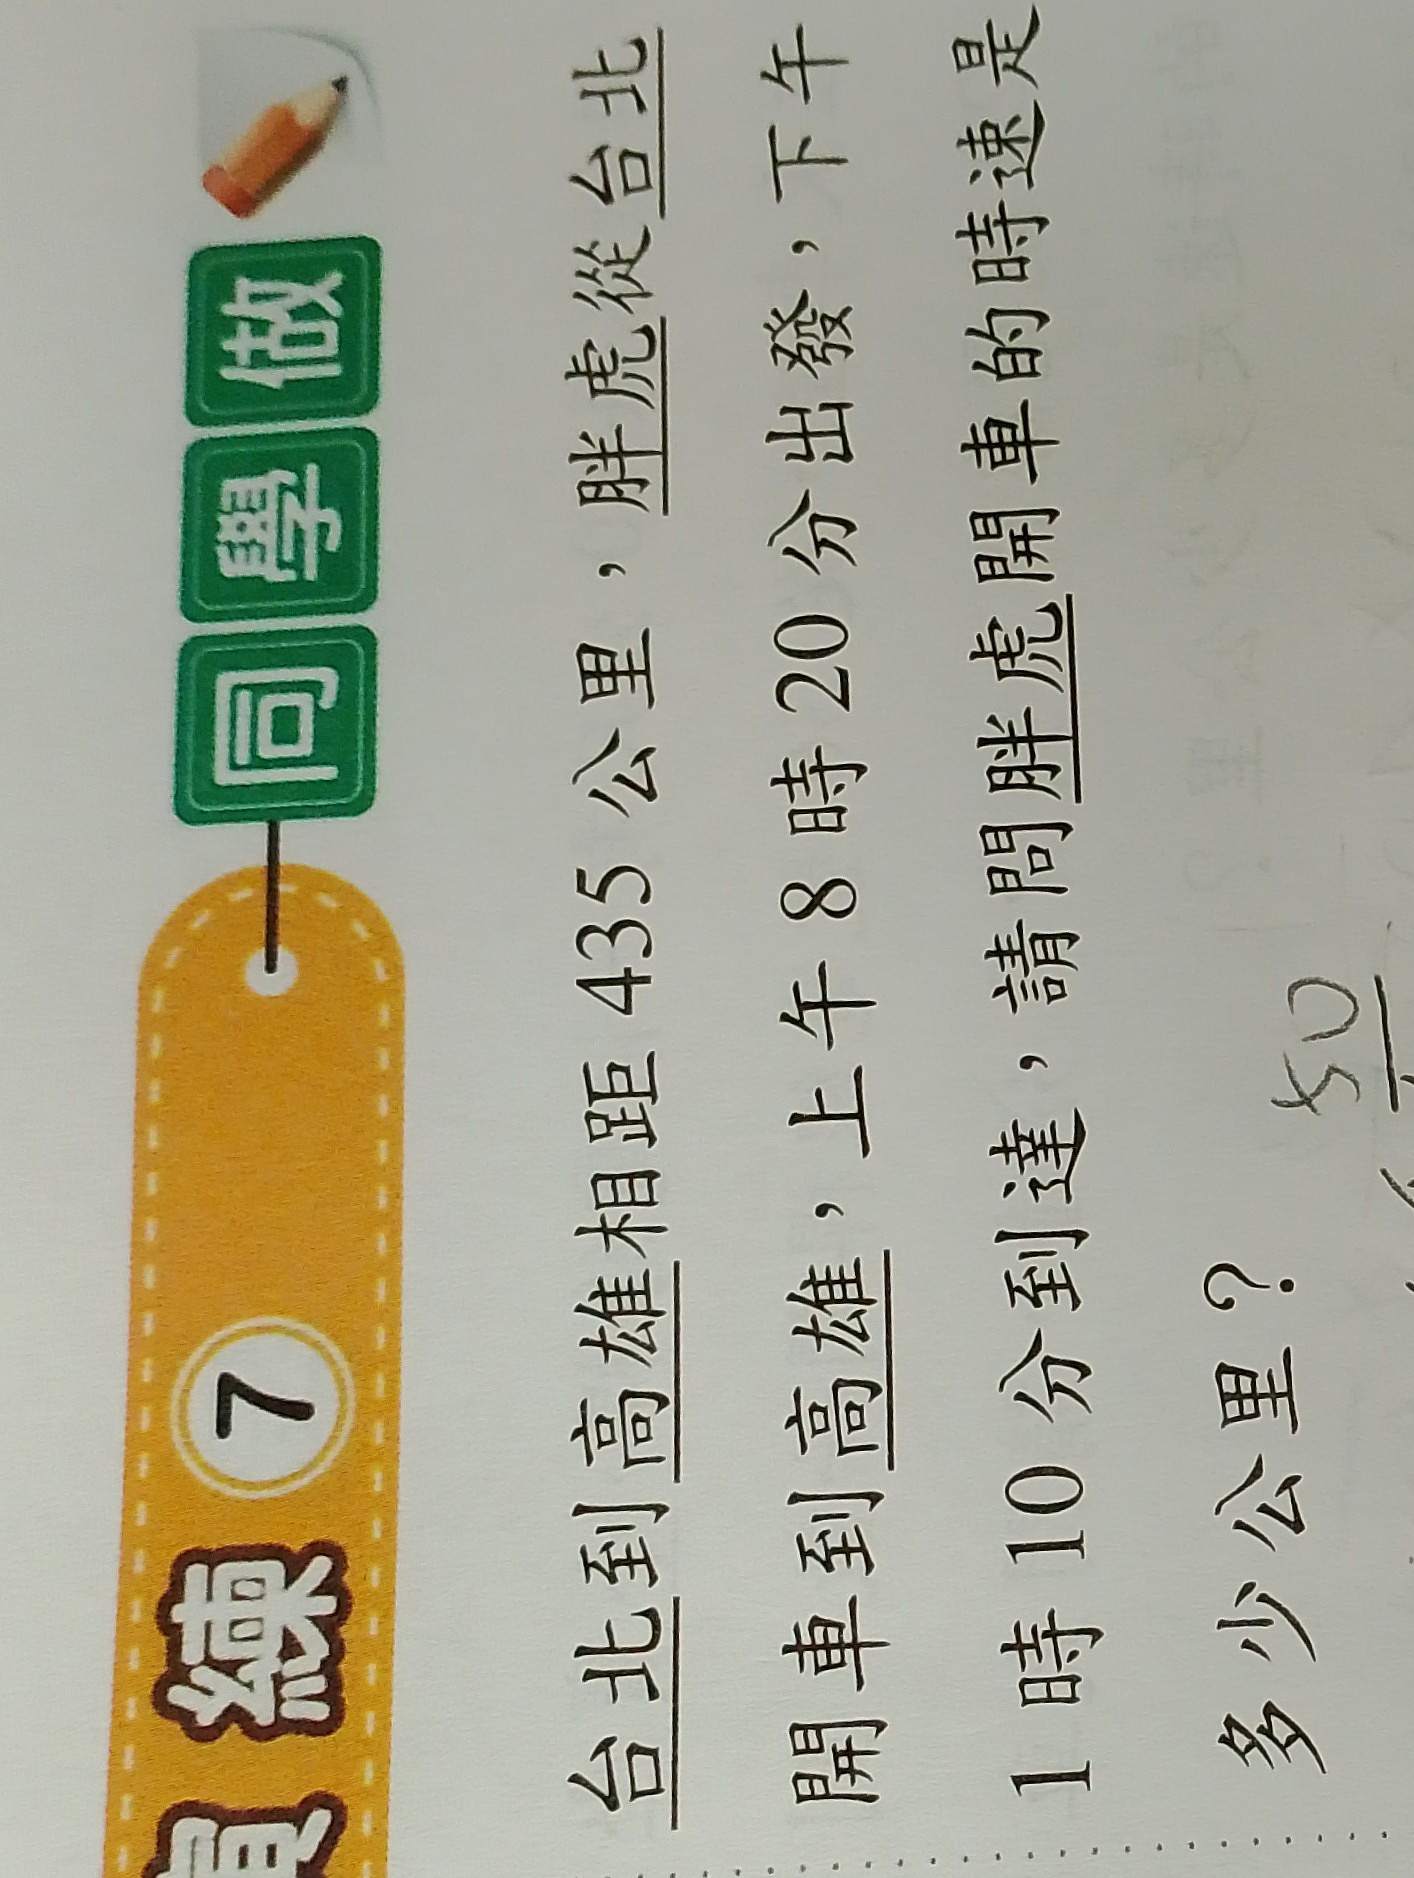 練 7 同學做
台北到高雄相距 435 公里，胖虎從台北
開車到高雄，上午 8 時 20 分出發，下午
1 時 10 分到達，請問胖虎開車的時速是
多少公里？
50